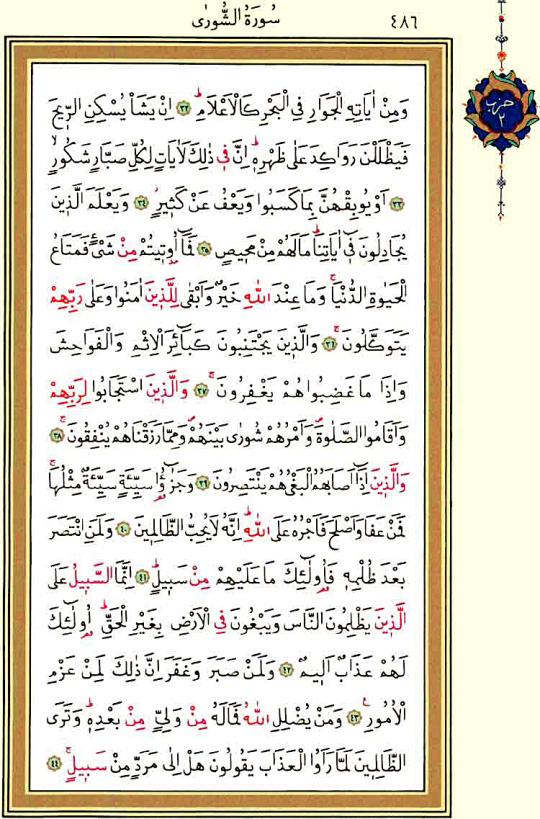 ٤٨٦
سُورَةُ الشُّورٰى
حزب
٢
وَمِنْ اٰيَاتِهِ الْجَوَارِ فِي الْبَحْرِ كَالْاَعْلَامِۜ ﴿٣٢﴾ اِنْ يَشَأْ يُسْكِنِ الرّ۪يحَ
فَيَظْلَلْنَ رَوَاكِدَ عَلٰى ظَهْرِه۪ۜ اِنَّ ف۪ي ذٰلِكَ لَاٰيَاتٍ لِكُلِّ صَبَّارٍ شَكُورٍۙ
﴿٣٣﴾ اَوْ يُوبِقْهُنَّ بِمَا كَسَبُوا وَيَعْفُ عَنْ كَث۪يرٍۘ ﴿٣٤﴾ وَيَعْلَمَ الَّذ۪ينَ
يُجَادِلُونَ ف۪ٓي اٰيَاتِنَاۜ مَا لَهُمْ مِنْ مَح۪يصٍ ﴿٣٥﴾ فَمَٓا اُو۫ت۪يتُمْ مِنْ شَيْءٍ فَمَتَاعُ
الْحَيٰوةِ الدُّنْيَاۚ وَمَا عِنْدَ اللّٰهِ خَيْرٌ وَاَبْقٰى لِلَّذ۪ينَ اٰمَنُوا وَعَلٰى رَبِّهِمْ
يَتَوَكَّلُونَۚ ﴿٣٦﴾ وَالَّذ۪ينَ يَجْتَنِبُونَ كَبَٓائِرَ الْاِثْمِ وَالْفَوَاحِشَ
وَاِذَا مَا غَضِبُوا هُمْ يَغْفِرُونَۚ ﴿٣٧﴾ وَالَّذ۪ينَ اسْتَجَابُوا لِرَبِّهِمْ
وَاَقَامُوا الصَّلٰوةَۖ وَاَمْرُهُمْ شُورٰى بَيْنَهُمْۖ وَمِمَّا رَزَقْنَاهُمْ يُنْفِقُونَۚ ﴿٣٨﴾
وَالَّذ۪ينَ اِذَٓا اَصَابَهُمُ الْبَغْيُ هُمْ يَنْتَصِرُونَ ﴿٣٩﴾ وَجَزٰٓؤُ۬ا سَيِّئَةٍ سَيِّئَةٌ مِثْلُهَاۚ
فَمَنْ عَفَا وَاَصْلَحَ فَاَجْرُهُ عَلَى اللّٰهِۜ اِنَّهُ لَا يُحِبُّ الظَّالِم۪ينَ ﴿٤٠﴾ وَلَمَنِ انْتَصَرَ
بَعْدَ ظُلْمِه۪ فَاُو۬لٰٓئِكَ مَا عَلَيْهِمْ مِنْ سَب۪يلٍۜ ﴿٤١﴾ اِنَّمَا السَّب۪يلُ عَلَى
الَّذ۪ينَ يَظْلِمُونَ النَّاسَ وَيَبْغُونَ فِي الْاَرْضِ بِغَيْرِ الْحَقِّۜ اُو۬لٰٓئِكَ
لَهُمْ عَذَابٌ اَل۪يمٌ ﴿٤٢﴾ وَلَمَنْ صَبَرَ وَغَفَرَ اِنَّ ذٰلِكَ لَمِنْ عَزْمِ
الْاُمُورِ۟ ﴿٤٣﴾ وَمَنْ يُضْلِلِ اللّٰهُ فَمَا لَهُ مِنْ وَلِيٍّ مِنْ بَعْدِه۪ۜ وَتَرَى
الظَّالِم۪ينَ لَمَّا رَاَوُا الْعَذَابَ يَقُولُونَ هَلْ اِلٰى مَرَدٍّ مِنْ سَب۪يلٍۚ ﴿٤٤﴾